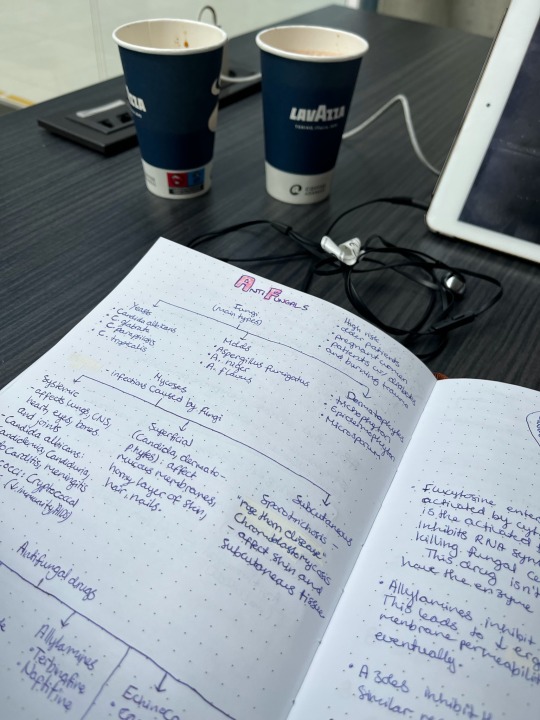 LAVAZZA
TORINO, ITALIA, 1895
ANTI FUNGALS
Fungi
(main types)
Yeasts
• Candida albicans
• C. glabrata
• C. parapsilosis
• C. tropicalis
Molds
• Aspergillus fumigatus
• A. niger
• A. flavus
Dermatophytes
• Trichophyton
• Epidermophyton
• Microsporum
High risk
• older patients
• pregnant women
• patients w/
and burning trauma
Mycoses
infections caused by fungi
Systemic
- affects lungs, CNS,
heart, eyes, bones
and joints
- Candida albicans:
candidemia, Candiduria,
carditis, meningitis
cocci: Cryptococcal
(↓immunity/AIDS)
Superficial
(Candida, dermato-
phytes): affect
mucous membranes,
horny layer of skin,
hair, nails.
Subcutaneous
Sporotrichosis
"rose thorn disease"
Chromoblastomycosis
- affect skin and
subcutaneous tissue
Antifungal drugs
Allylamines
• Terbinafine
• Naftifine
Echinoca
• Flucytosine ente
activated by cyt
is the activated
Inhibits RNA syn
killing fungal ce
This drug isn't
have the enzyme
• Allylamines inhibit
This leads to ↓ erg
membrane permeabili
eventually.
• Azoles inhibit th
Similar